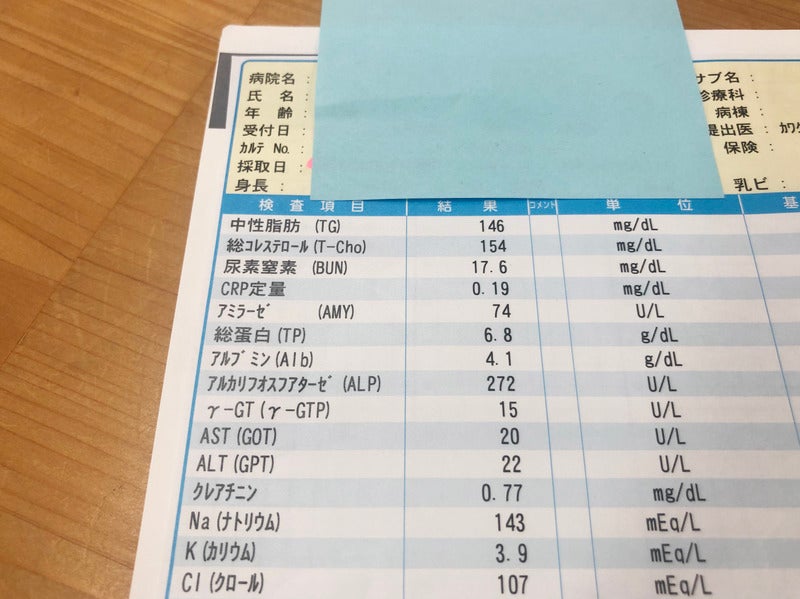 病院名 :
氏 名 :
年 齢 :
受付日 :
ｶﾙﾃ No. :
採取日 :
身長 :
サブ名 :
診療科 :
病棟 :
提出医 :
保険 :
乳ビ :
検 査 項 目 結 果 コメント 単 位
中性脂肪 (TG) 146 mg/dL
総ｺﾚｽﾃﾛｰﾙ(T-Cho) 154 mg/dL
尿素窒素 (BUN) 17.6 mg/dL
CRP定量 0.19 mg/dL
ｱﾐﾗｰｾﾞ (AMY) 74 U/L
総蛋白(TP) 6.8 g/dL
ｱﾙﾌﾞﾐﾝ(Alb) 4.1 g/dL
ｱﾙｶﾘﾌｵｽﾌｱﾀｰｾﾞ(ALP) 272 U/L
γ-GT(γ-GTP) 15 U/L
AST(GOT) 20 U/L
ALT(GPT) 22 U/L
ｸﾚｱﾁﾆﾝ 0.77 mg/dL
Na(ﾅﾄﾘｳﾑ) 143 mEq/L
K(ｶﾘｳﾑ) 3.9 mEq/L
Cl(ｸﾛｰﾙ) 107 mEq/L